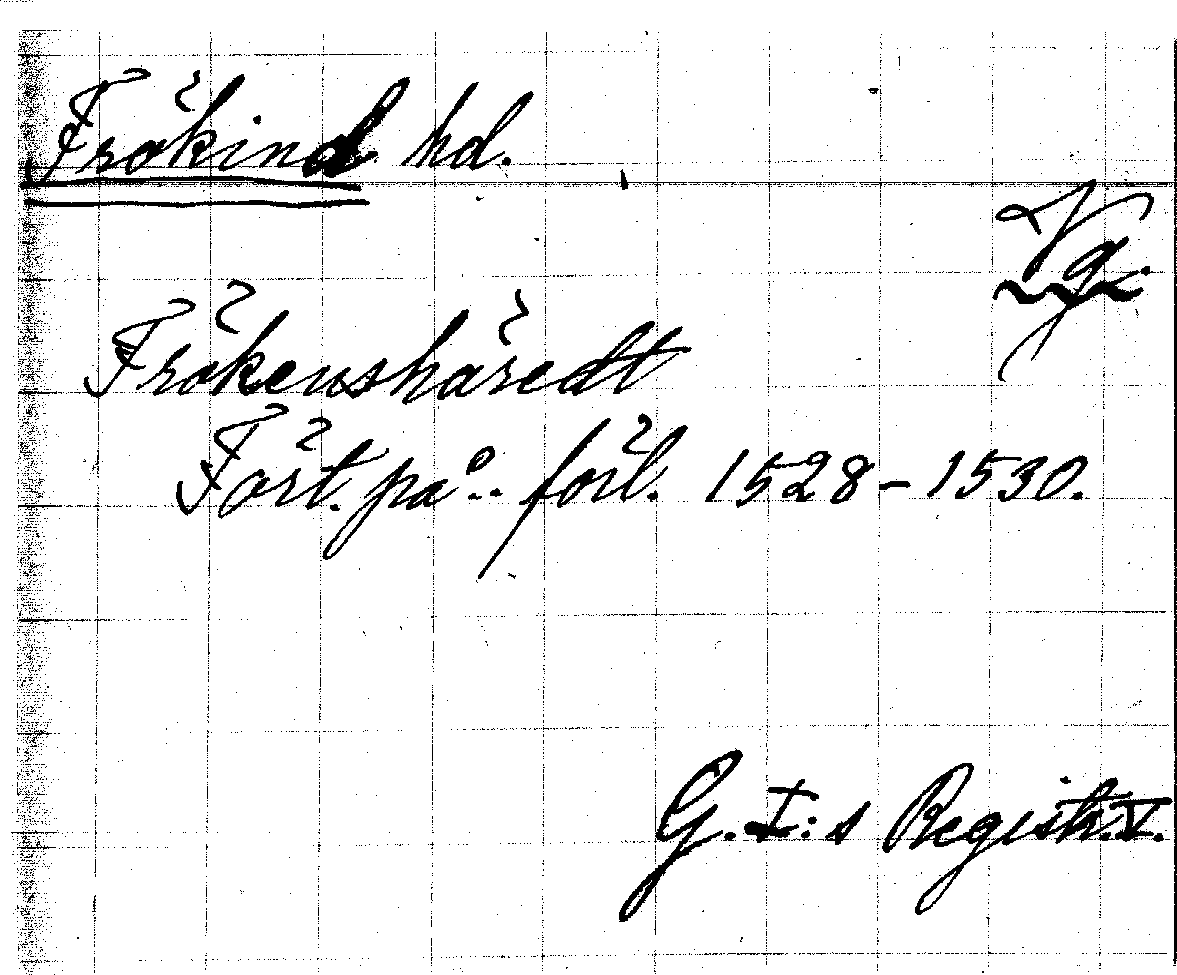 Frökind hd.
Vg.
Frökenshäredt
Fört. på.. förl. 1528-1530.
G. I:s Registr. V.